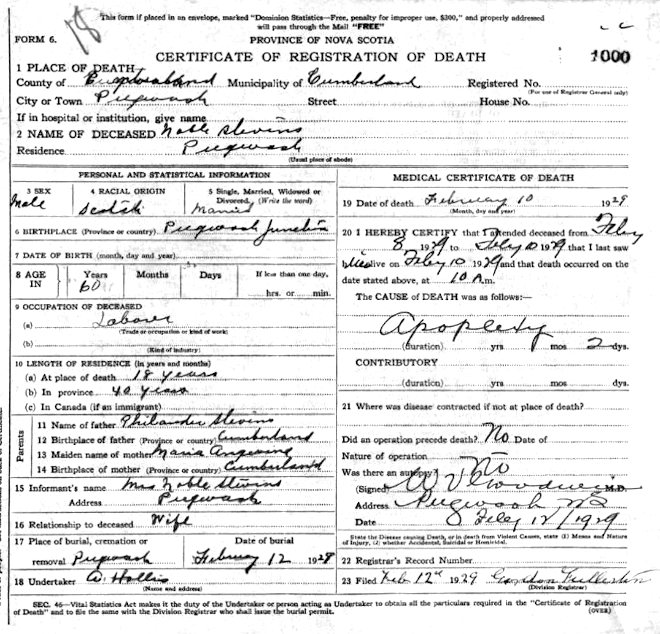 18
This form if placed in an envelope, marked "Dominion Statistics—Free, penalty for improper use, $300," and properly addressed
will pass through the Mail "FREE"
FORM 6.
PROVINCE OF NOVA SCOTIA
CERTIFICATE OF REGISTRATION OF DEATH
1000
1 PLACE OF DEATH
County of Cumberland Municipality of Cumberland Registered No.
(For use of Registrar General only)
City or Town Pugwash Street House No.
If in hospital or institution, give name
2 NAME OF DECEASED Noble Stevens
Residence Pugwash
(Usual place of abode)
PERSONAL AND STATISTICAL INFORMATION
3 SEX 4 RACIAL ORIGIN 5 Single, Married, Widowed or
Divorced, (Write the word)
Male Scotish Married
6 BIRTHPLACE (Province or country) Pugwash Junction
7 DATE OF BIRTH (month, day and year)
8 AGE IN Years Months Days If less than one day,
60
hrs. or min.
9 OCCUPATION OF DECEASED
(a) Laborer
(Trade or occupation or kind of work)
(b)
(Kind of industry)
10 LENGTH OF RESIDENCE (in years and months)
(a) At place of death 18 years
(b) In province 40 years
(c) In Canada (if an immigrant)
Parents
11 Name of father Philander Stevens
12 Birthplace of father (Province or country) Cumberland
13 Maiden name of mother Maria Angevine
14 Birthplace of mother (Province or country) Cumberland
15 Informant's name Mrs Noble Stevens
Address Pugwash
16 Relationship to deceased Wife
17 Place of burial, cremation or Date of burial
removal Pugwash February 12 1928
18 Undertaker W. Hollis
(Name and address)
MEDICAL CERTIFICATE OF DEATH
19 Date of death February 10 1929
(Month, day and year)
20 I HEREBY CERTIFY that I attended deceased from Feby
8 1929 to Feby 10 1929 that I last saw
alive on Feby 10 1929 and that death occurred on
date stated above, at 10 A.m.
The CAUSE of DEATH was as follows:—
Apoplexy
(duration) yrs mos 2 dys.
CONTRIBUTORY
(duration) yrs. mos. dys.
21 Where was disease contracted if not at place of death?
Did an operation precede death? No Date of
Nature of operation
Was there an autopsy? No
(Signed) M.D.
Address Pugwash NS
Date Feby 12/1929
State the Disease causing Death, or in death from Violent Causes, state (1) Means and Nature
of Injury, (2) whether Accidental, Suicidal or Homicidal.
22 Registrar's Record Number
23 Filed Feb 12th 1929 Gordon Fullerton
(Division Registrar)
SEC. 46—Vital Statistics Act makes it the duty of the Undertaker or person acting as Undertaker to obtain all the particulars required in the "Certificate of Registration
of Death" and to file the same with the Division Registrar who shall issue the burial permit. (OVER)